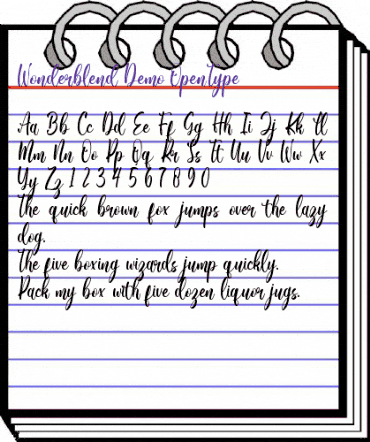 Wonderblend Demo OpenType
Aa Bb Cc Dd Ee Ff Gg Hh Ii Jj Kk Ll
Mm Nn Oo Pp Qq Rr Ss Tt Uu Vv Ww Xx
Yy Zz 1 2 3 4 5 6 7 8 9 0
The quick brown fox jumps over the lazy
dog.
The five boxing wizards jump quickly.
Pack my box with five dozen liquor jugs.